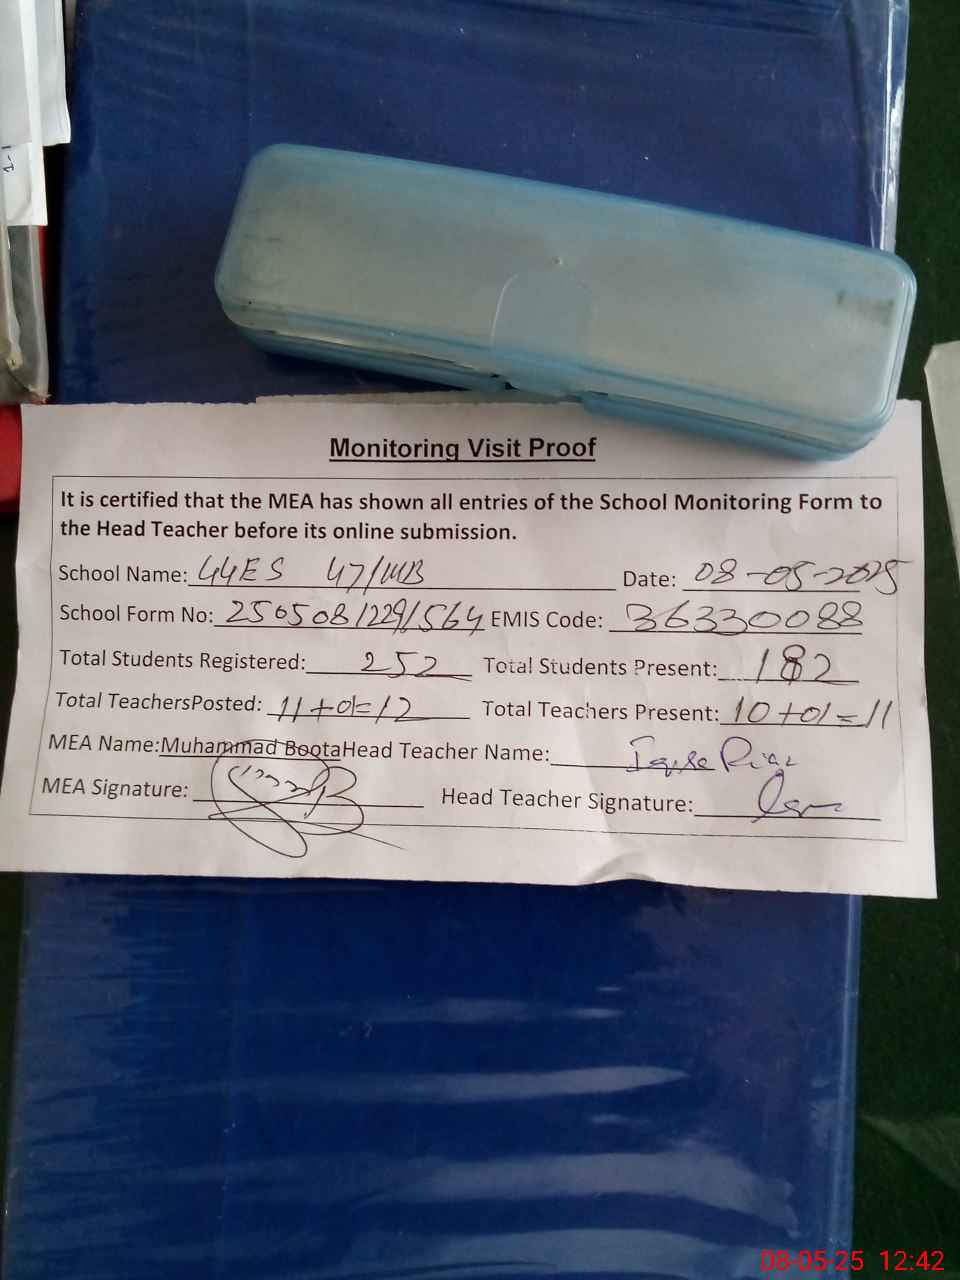 Monitoring Visit Proof
It is certified that the MEA has shown all entries of the School Monitoring Form to
the Head Teacher before its online submission.
School Name: GGES 47/MB Date: 08-05-2025
School Form No: 250508/229/564 EMIS Code: 36330088
Total Students Registered: 252 Total Students Present: 182
Total TeachersPosted: 11+01=12 Total Teachers Present: 10+01=11
MEA Name:Muhammad BootaHead Teacher Name:
MEA Signature: Head Teacher Signature:
08-05-25 12:42